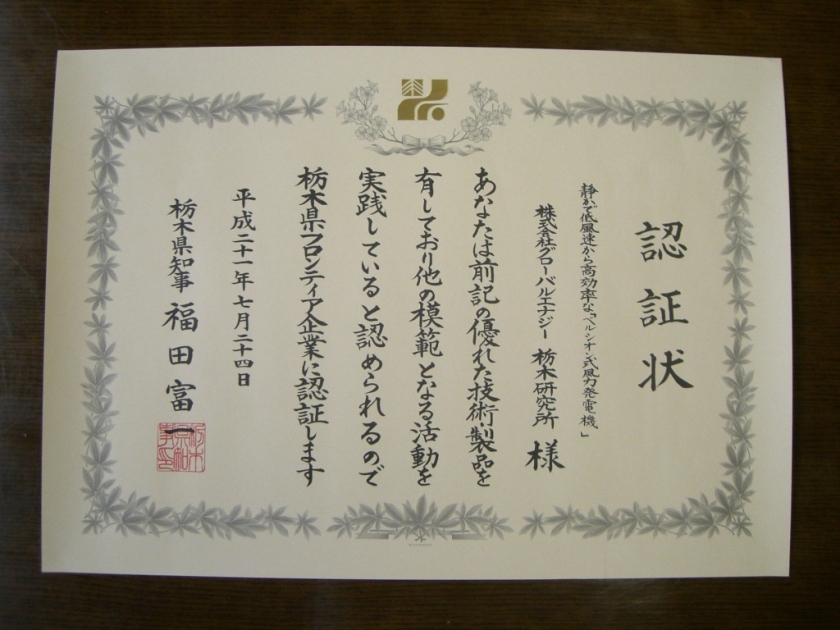 認証状
静かで低風速から高効率な「ベルシオン式風力発電機」
株式会社グローバルエナジー 栃木研究所 様
あなたは前記の優れた技術・製品を
有しており他の模範となる活動を
実践していると認められるので
栃木県フロンティア企業に認証します
平成二十一年七月二十四日
栃木県知事 福田富一